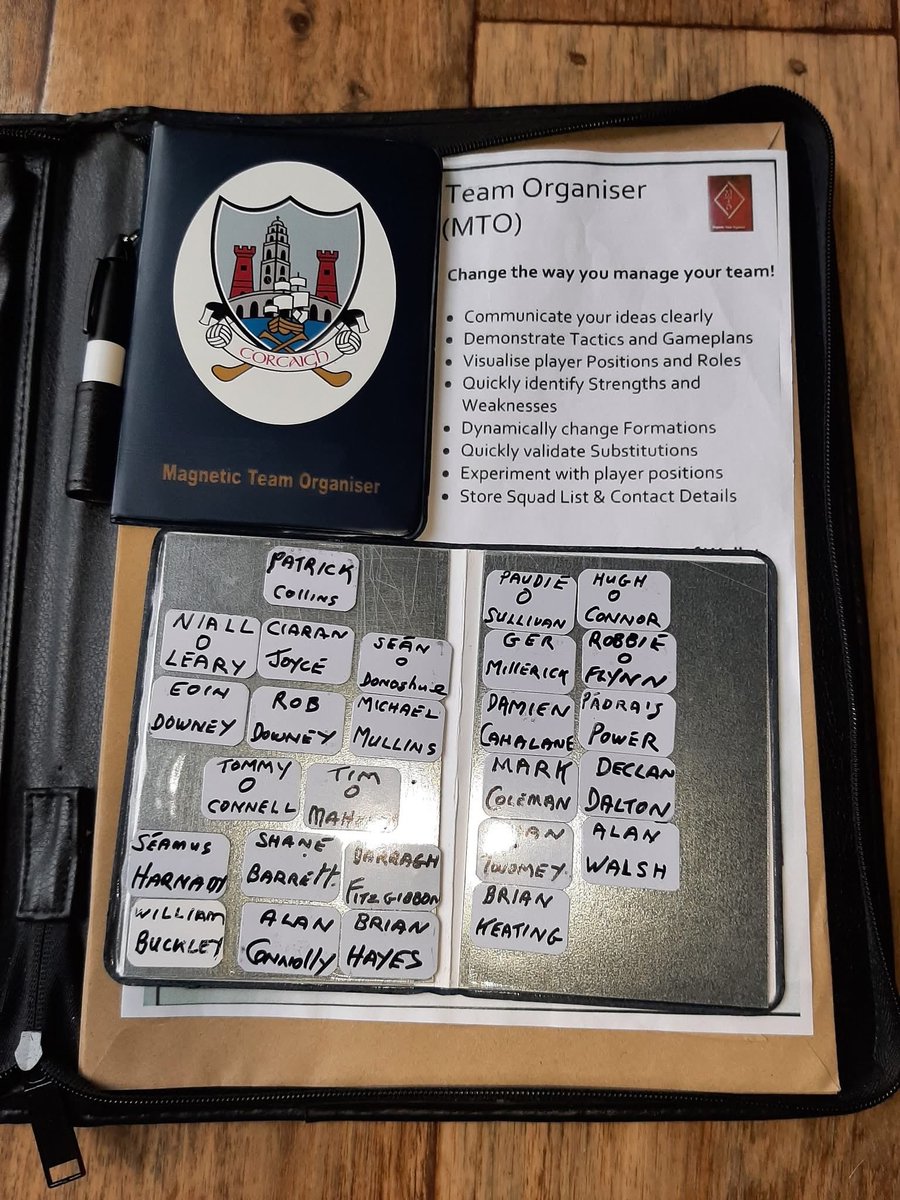 CORCAIGH
Magnetic Team Organiser
Team Organiser
(MTO)
Change the way you manage your team!
• Communicate your ideas clearly
• Demonstrate Tactics and Gameplans
• Visualise player Positions and Roles
• Quickly identify Strengths and
Weaknesses
• Dynamically change Formations
• Quickly validate Substitutions
• Experiment with player positions
• Store Squad List & Contact Details
PATRICK
COLLINS
NIALL
O
LEARY
CIARAN
JOYCE
SEÁN
O
Donoghue
EOIN
DOWNEY
ROB
DOWNEY
MICHAEL
MULLINS
TOMMY
O
CONNELL
TIM
O
SÉAMUS
HARNADY
SHANE
BARRETT.
DARRAGH
FITZGIBBON
WILLIAM
BUCKLEY
ALAN
Connolly
BRIAN
HAYES
PAUDIE
O
SULLIVAN
HUGH
O
CONNOR
GER
MILLERICK
ROBBIE
O
FLYNN
DAMIEN
CAHALANE
PÁDRAIG
POWER
MARK
COLEMAN
DECLAN
DALTON
TWOMEY
ALAN
WALSH
BRIAN
KEATING